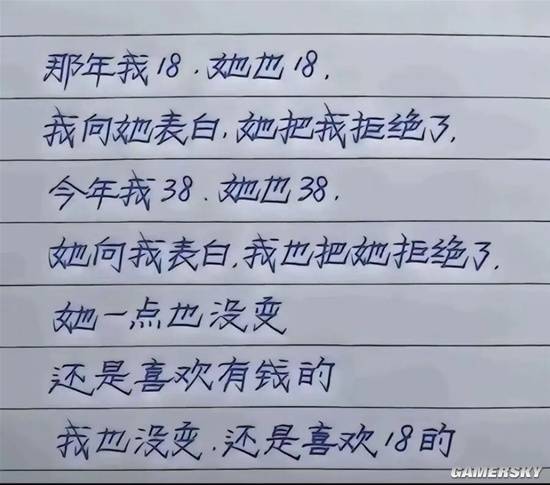 那年我18.她也18.
我向她表白,她把我拒绝了,
今年我38.她也38.
她向我表白,我也把她拒绝了.
她一点也没变
还是喜欢有钱的
我也没变.还是喜欢18的
GAMERSKY